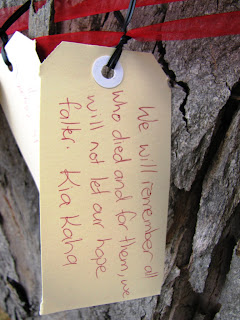 We will remember all
who died and for them, we
will not let our hope
falter. Kia Kaha